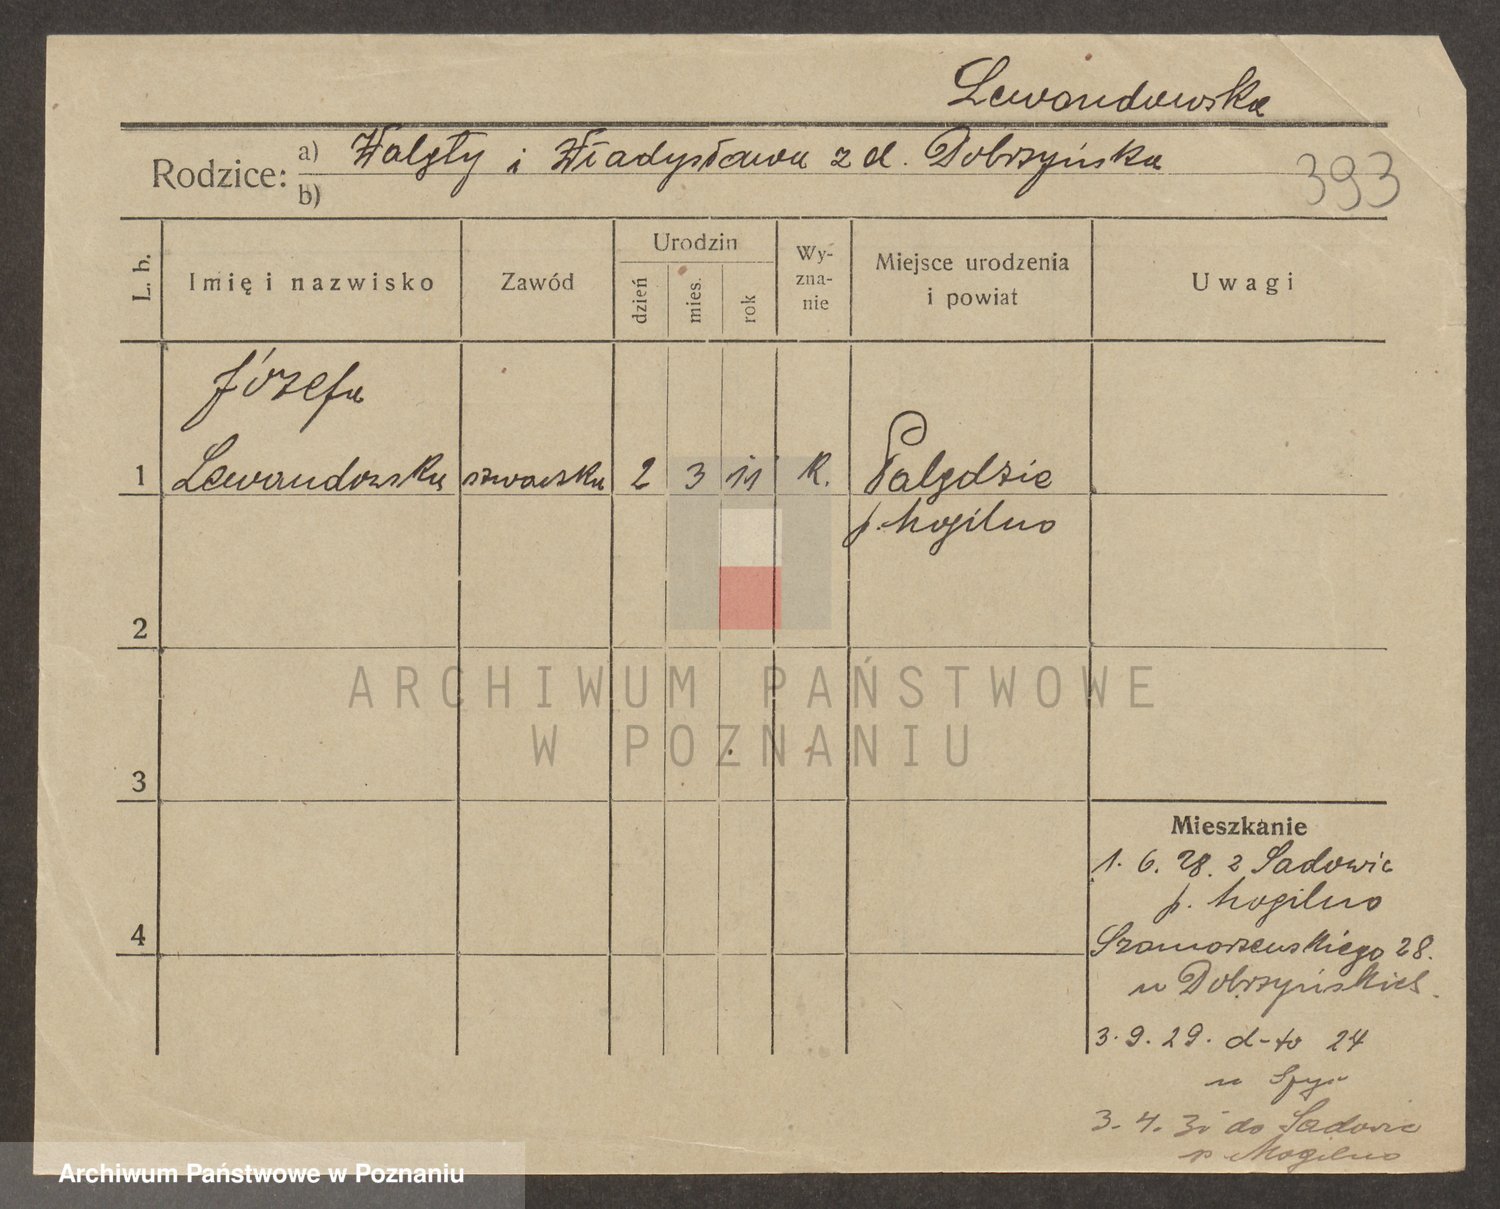 Lewandowska
Rodzice: a) Walęty i Władysława z d. Dobrzyńska
b)
393
L. b.
Imię i nazwisko
Zawód
Urodzin
dzień
mies.
rok
Wy-
zna-
nie
Miejsce urodzenia
i powiat
Uwagi
Józefa
1 Lewandowska szwaczka 2 3 11 R. Palędzie
p. Mogilno
2
3
4
ARCHIWUM PAŃSTWOWE
W POZNANIU
Mieszkanie
1. 6. 28. z Sadowic
p. Mogilno
Szamarzewskiego 28.
u Dobrzyńskich.
3. 9. 29. d-to 24
u
3. 4. 31 do Sadowic
p. Mogilno
Archiwum Państwowe w Poznaniu